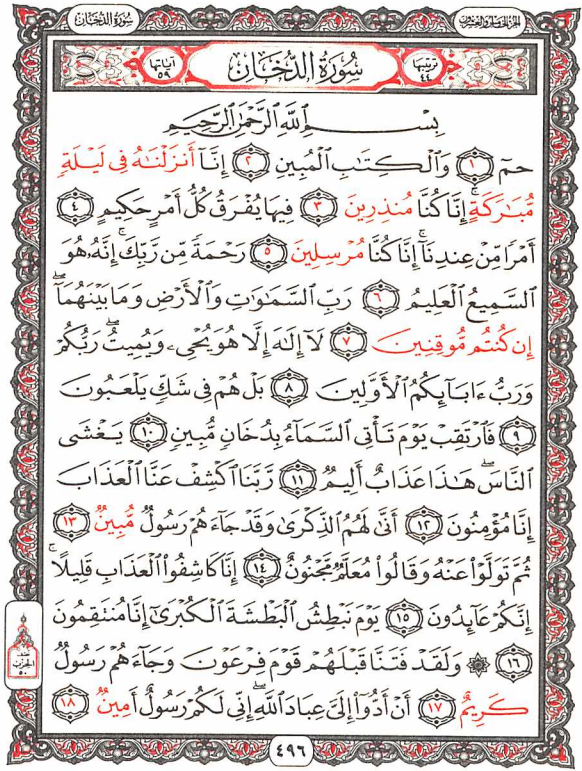 الجزء الخامس والعشرون
سُورَةُ الدُّخَانِ
ترتيبها ٤٤
سُورَةُ الدُّخَانِ
آياتها ٥٩
بِسْمِ ٱللَّهِ ٱلرَّحْمَٰنِ ٱلرَّحِيمِ
حمٓ ١ وَٱلْكِتَٰبِ ٱلْمُبِينِ ٢ إِنَّآ أَنزَلْنَٰهُ فِى لَيْلَةٍ
مُّبَٰرَكَةٍ ۚ إِنَّا كُنَّا مُنذِرِينَ ٣ فِيهَا يُفْرَقُ كُلُّ أَمْرٍ حَكِيمٍ ٤
أَمْرًا مِّنْ عِندِنَآ ۚ إِنَّا كُنَّا مُرْسِلِينَ ٥ رَحْمَةً مِّن رَّبِّكَ ۚ إِنَّهُۥ هُوَ
ٱلسَّمِيعُ ٱلْعَلِيمُ ٦ رَبِّ ٱلسَّمَٰوَٰتِ وَٱلْأَرْضِ وَمَا بَيْنَهُمَآ ۖ
إِن كُنتُم مُّوقِنِينَ ٧ لَآ إِلَٰهَ إِلَّا هُوَ يُحْىِۦ وَيُمِيتُ ۖ رَبُّكُمْ
وَرَبُّ ءَابَآئِكُمُ ٱلْأَوَّلِينَ ٨ بَلْ هُمْ فِى شَكٍّ يَلْعَبُونَ
٩ فَٱرْتَقِبْ يَوْمَ تَأْتِى ٱلسَّمَآءُ بِدُخَانٍ مُّبِينٍ ١٠ يَغْشَى
ٱلنَّاسَ ۖ هَٰذَا عَذَابٌ أَلِيمٌ ١١ رَّبَّنَا ٱكْشِفْ عَنَّا ٱلْعَذَابَ
إِنَّا مُؤْمِنُونَ ١٢ أَنَّىٰ لَهُمُ ٱلذِّكْرَىٰ وَقَدْ جَآءَهُمْ رَسُولٌ مُّبِينٌ ١٣
ثُمَّ تَوَلَّوْا۟ عَنْهُ وَقَالُوا۟ مُعَلَّمٌ مَّجْنُونٌ ١٤ إِنَّا كَاشِفُوا۟ ٱلْعَذَابِ قَلِيلًا ۚ
إِنَّكُمْ عَآئِدُونَ ١٥ يَوْمَ نَبْطِشُ ٱلْبَطْشَةَ ٱلْكُبْرَىٰٓ إِنَّا مُنتَقِمُونَ
١٦ ۞ وَلَقَدْ فَتَنَّا قَبْلَهُمْ قَوْمَ فِرْعَوْنَ وَجَآءَهُمْ رَسُولٌ
كَرِيمٌ ١٧ أَنْ أَدُّوٓا۟ إِلَىَّ عِبَادَ ٱللَّهِ ۖ إِنِّى لَكُمْ رَسُولٌ أَمِينٌ ١٨
الحزب
٥٠
٤٩٦